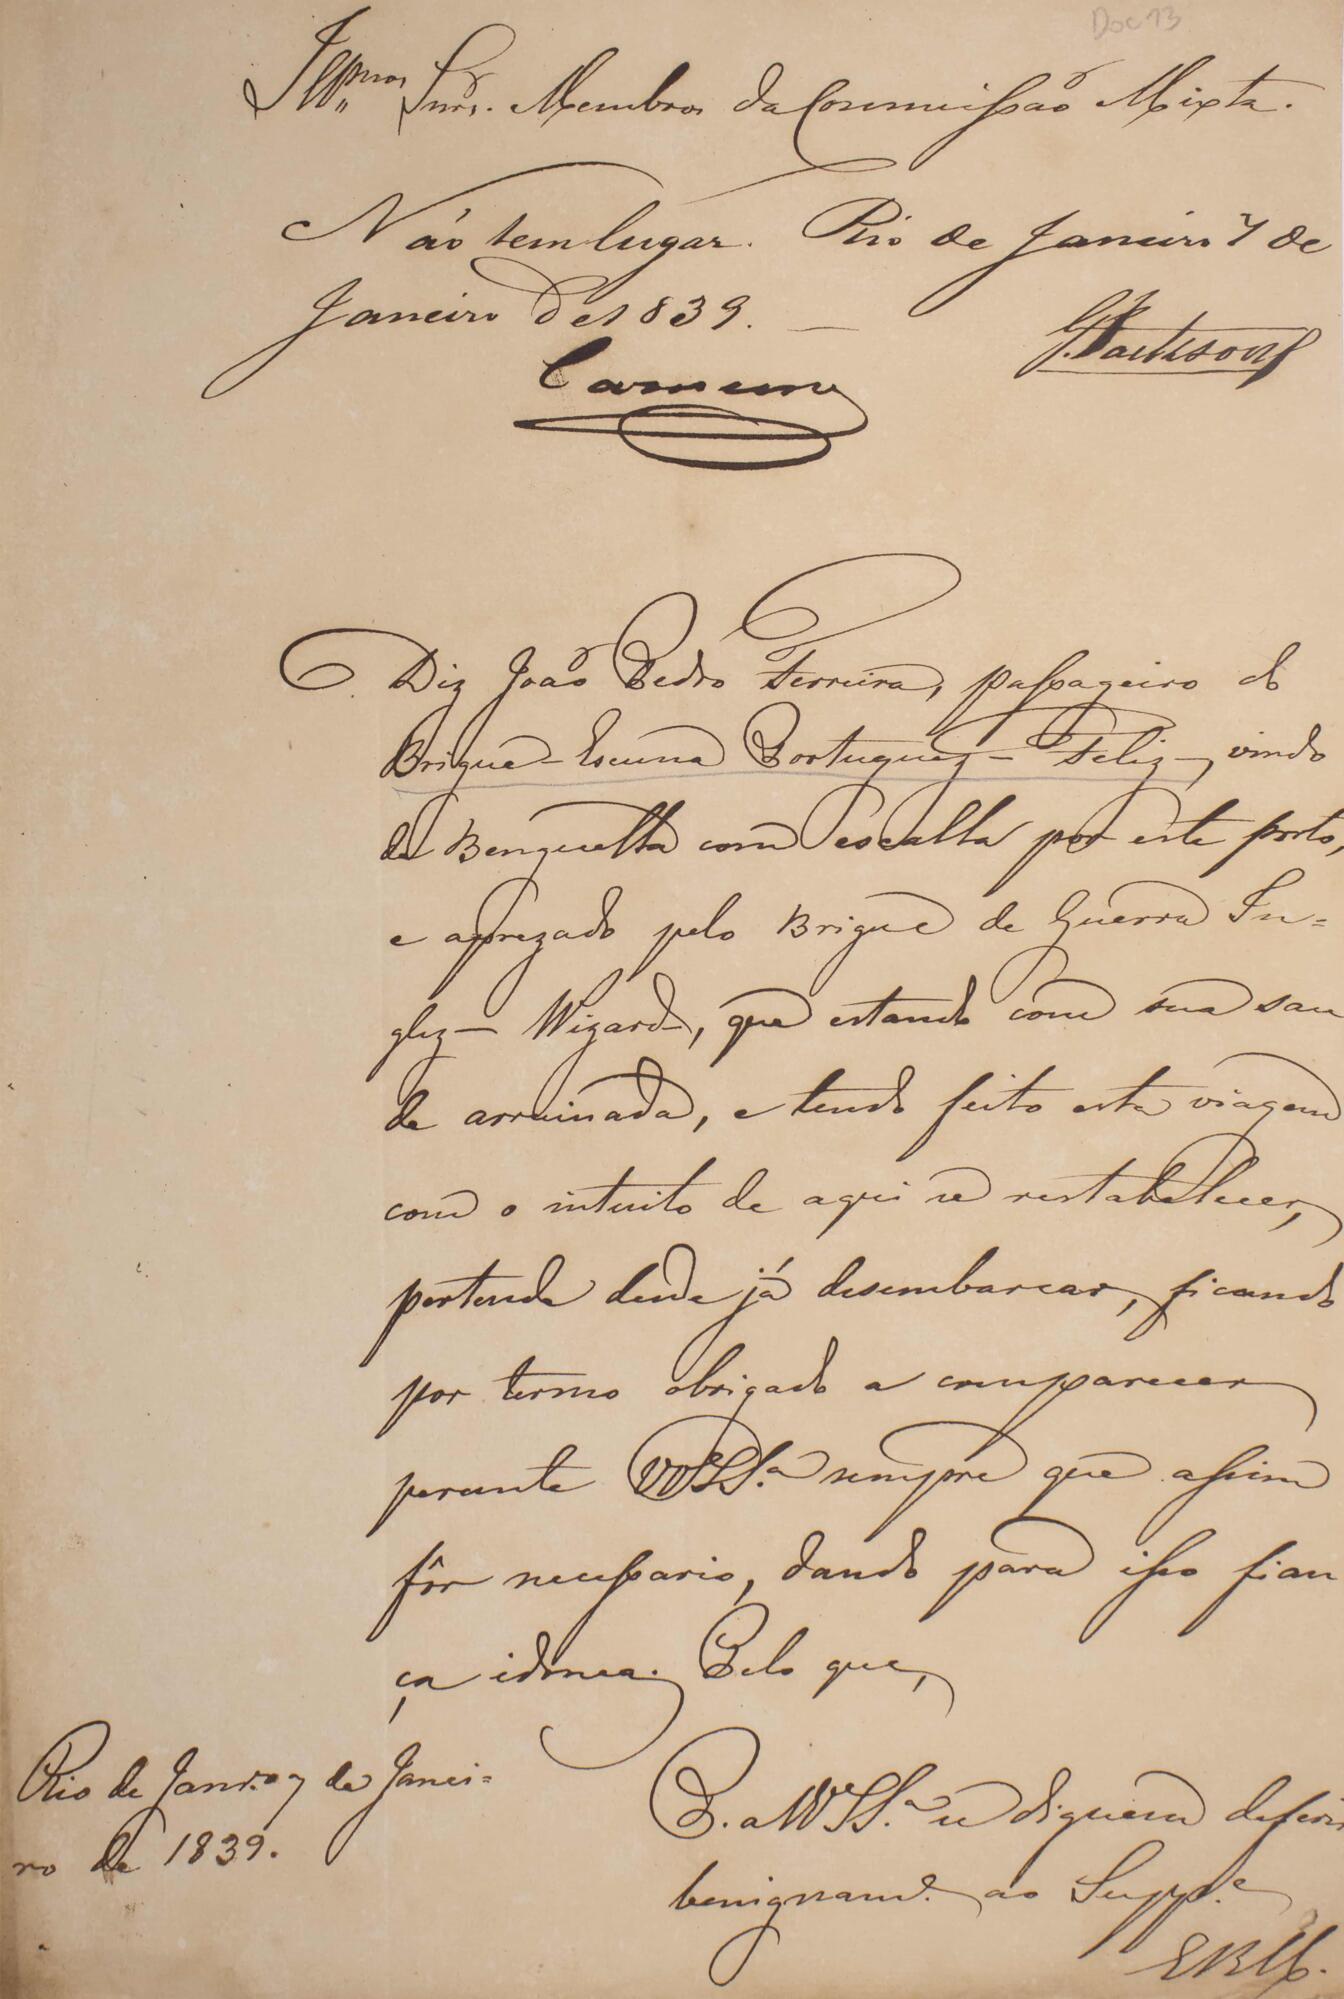 Doc 13
Illmos Snrs. Membros da Commissaõ Mixta.
Naõ tem lugar. Rio de Janeiro 7 de
Janeiro de 1839.
G. Jackson
Carneiro
Diz Joaõ Pedro Ferreira, passageiro do
Brigue-Escuna Portuguez- Feliz-, vindo
de Benguella com escalla por este porto,
e aprezado pelo Brigue de Guerra In=
glez- Wizard-, que estando com sua sau
de arruinada, e tendo feito esta viagem
com o intuito de aqui se restabelecer,
pertende desde já desembarcar, ficando
por termo obrigado a comparecer
perante VVSSª sempre que assim
fôr necessario, dando para isso fian
ça idonea. Pelo que,
P. a VVSSª se diguem deferir
benignamẽ. ao Suppe
ERM.
Rio de Janro 7 de Janei=
ro de 1839.